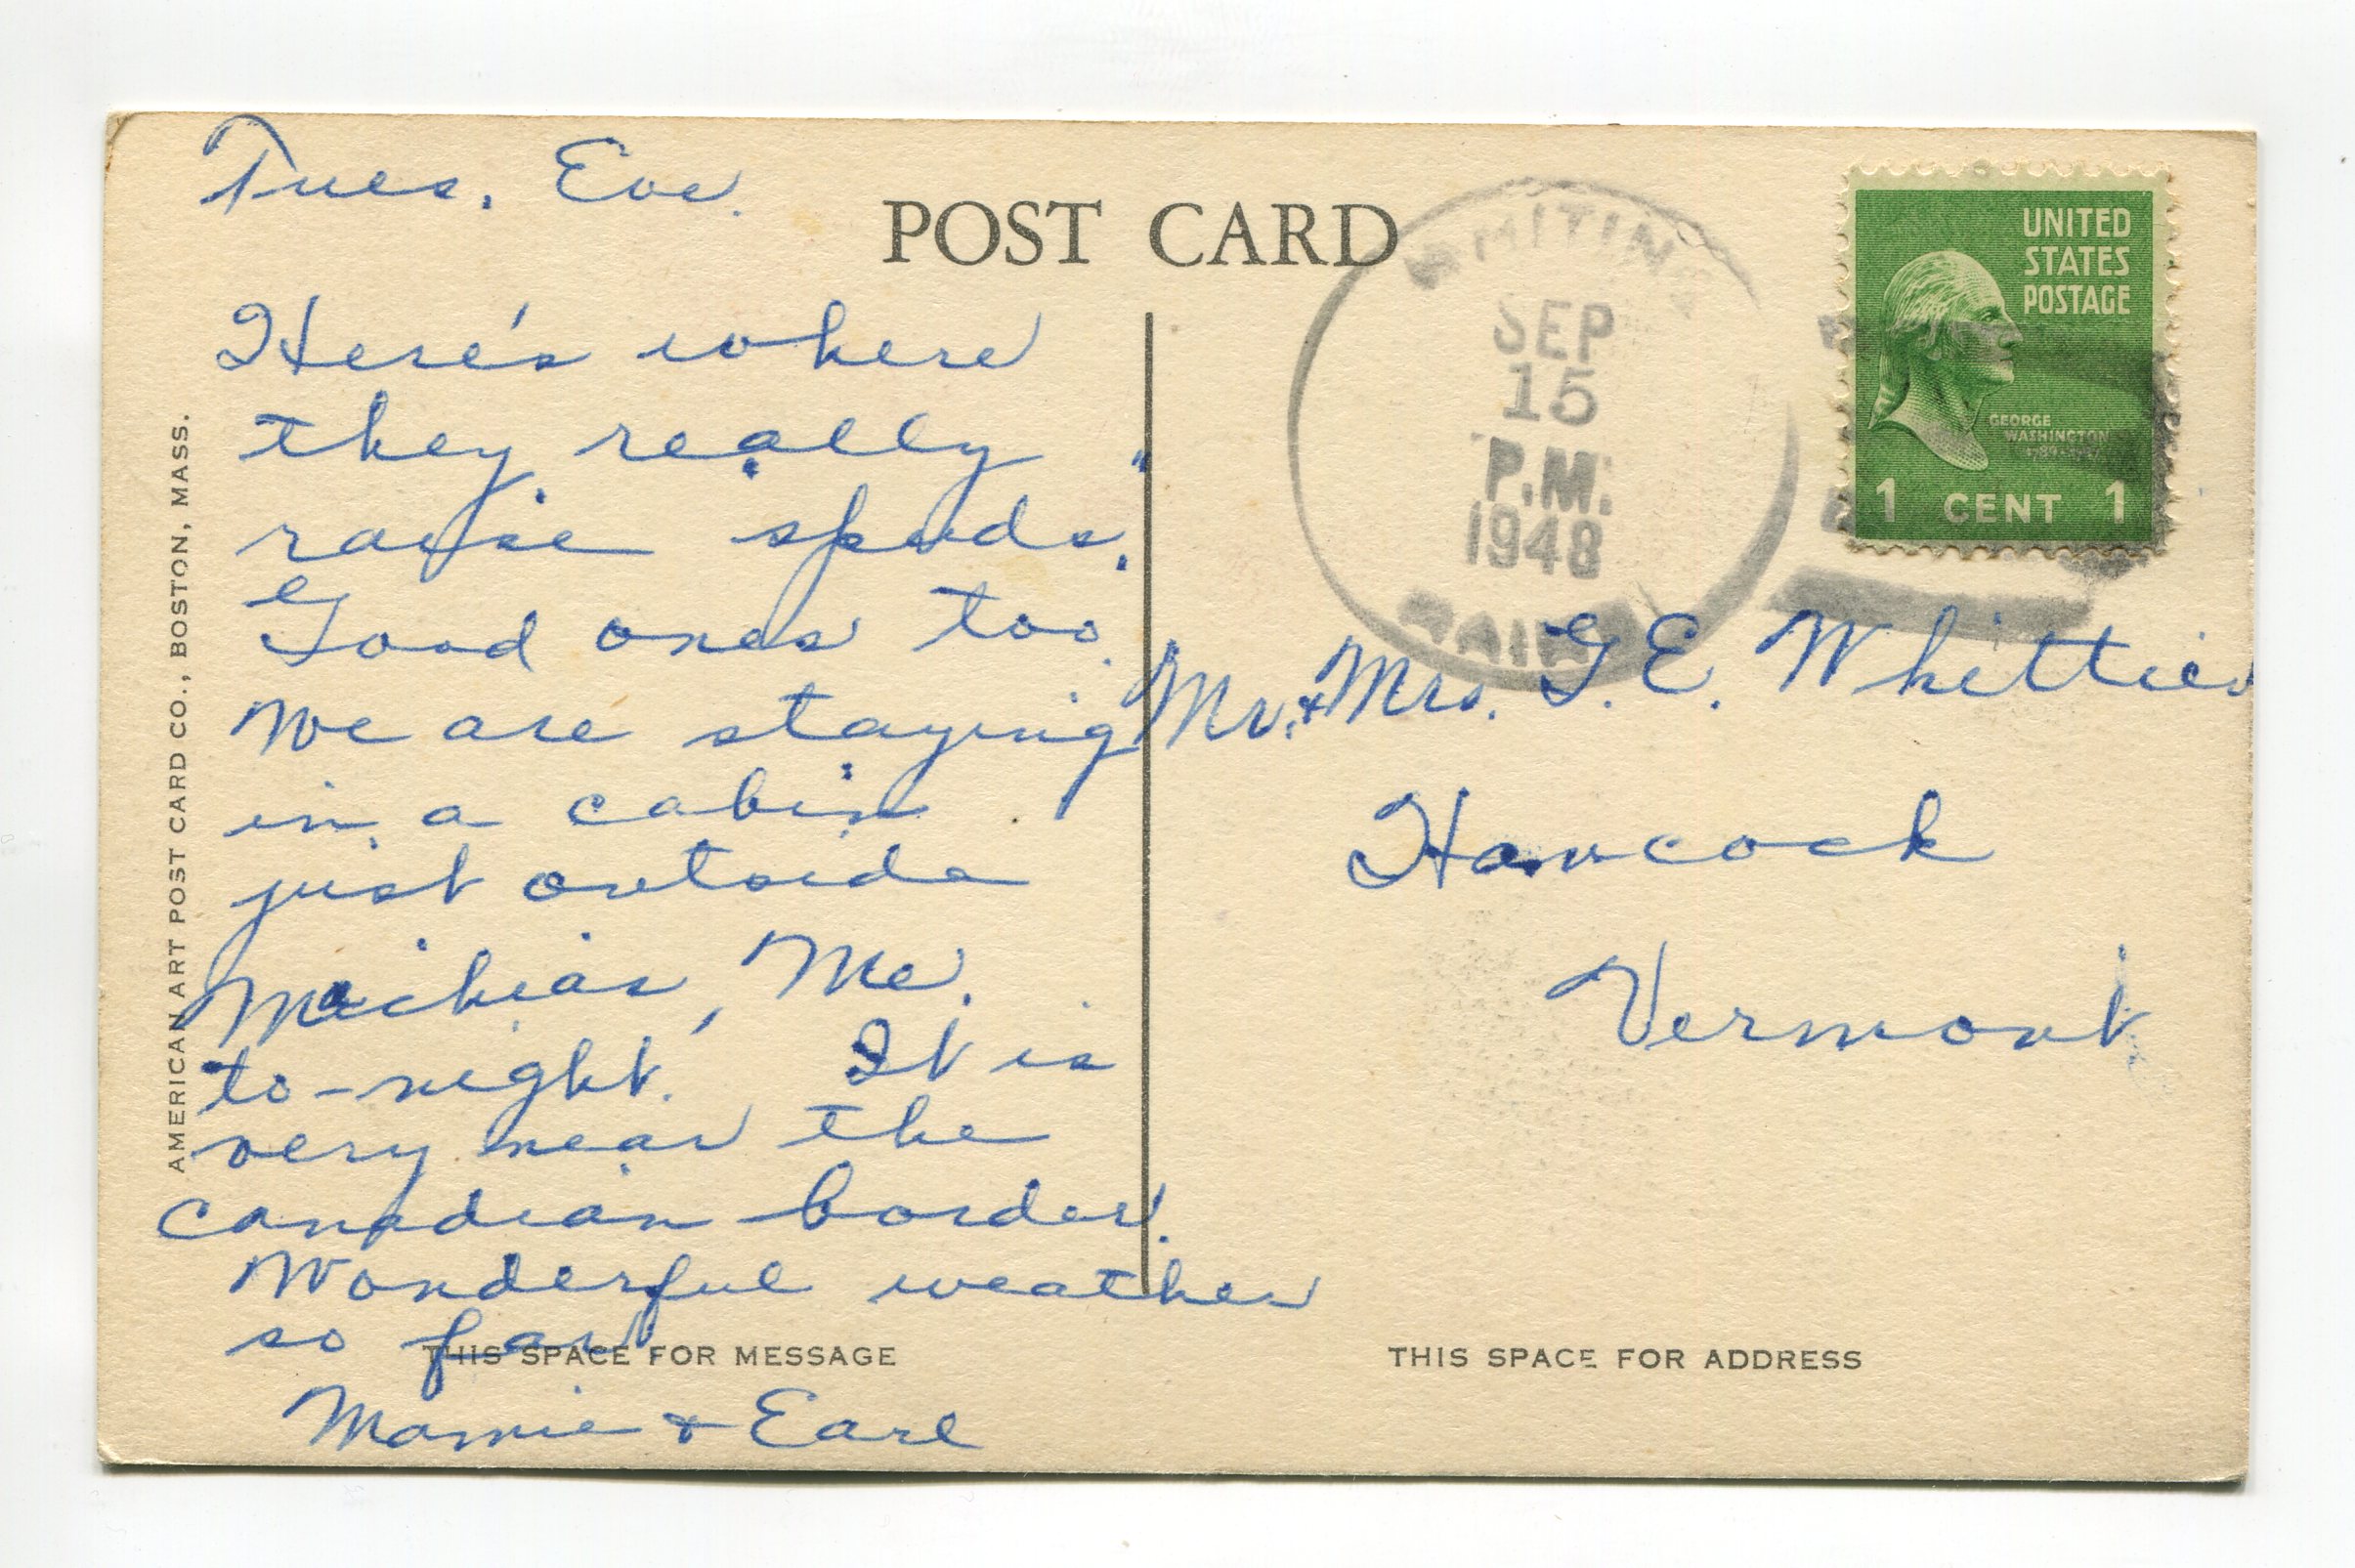 Tues. Eve.
POST CARD
Here's where
they really
raise spuds.
Good ones too.
We are staying
in a cabin
just outside
Machias, Me.
to-night. It is
very near the
Canadian border.
Wonderful weather
so far
THIS SPACE FOR MESSAGE
Mamie & Earl
AMERICAN ART POST CARD CO., BOSTON, MASS.
WHITING
SEP
15
P.M.
1948
MAINE
UNITED
STATES
POSTAGE
GEORGE
WASHINGTON
1 CENT 1
Mr. & Mrs. G. E. Whittier
Hancock
Vermont
THIS SPACE FOR ADDRESS